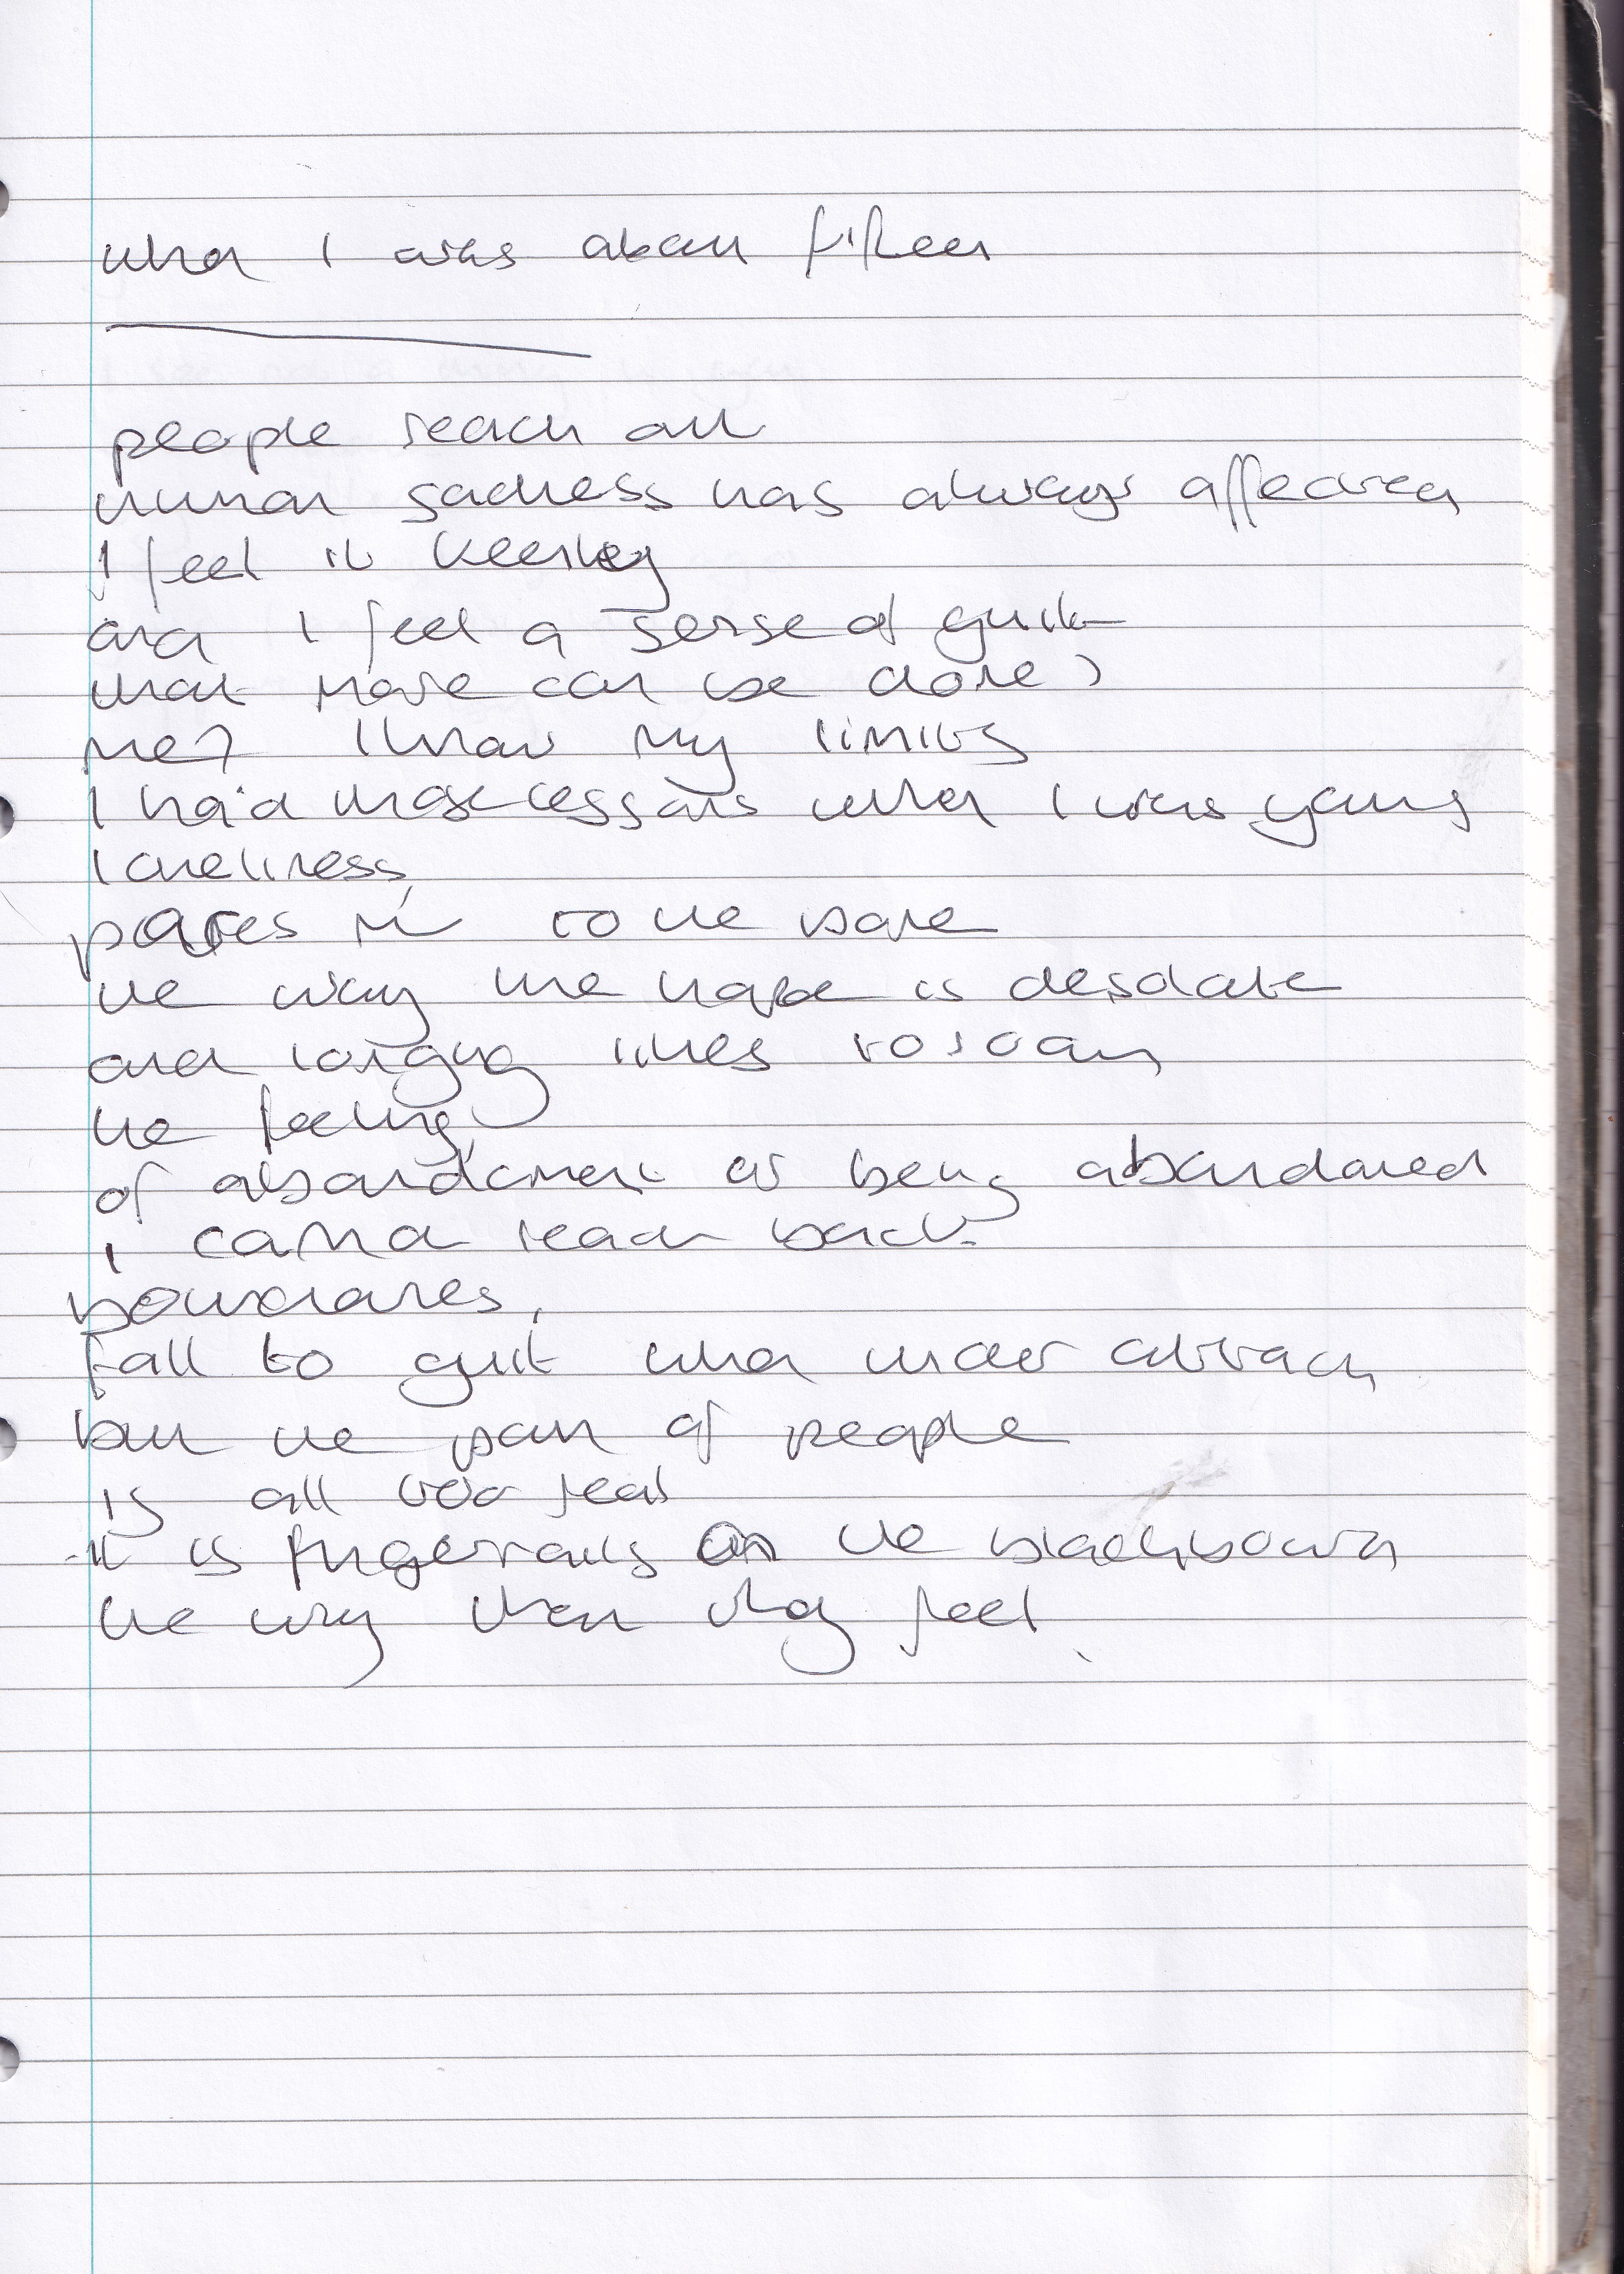 when I was about fifteen
people reach out
human sadness has always affected
I feel it keenly
and I feel a sense of guilt
what more can be done?
me? I know my limits
I had those lessons when I was young
loneliness,
pares me to the bone
the way the hope is desolate
and longing likes to
the feeling,
of abandonment or being abandoned
I cannot reach back
boundaries,
fall to guilt when under attack,
but the pain of people
is all too real
it is fingernails on the blackboard
the way that they feel.